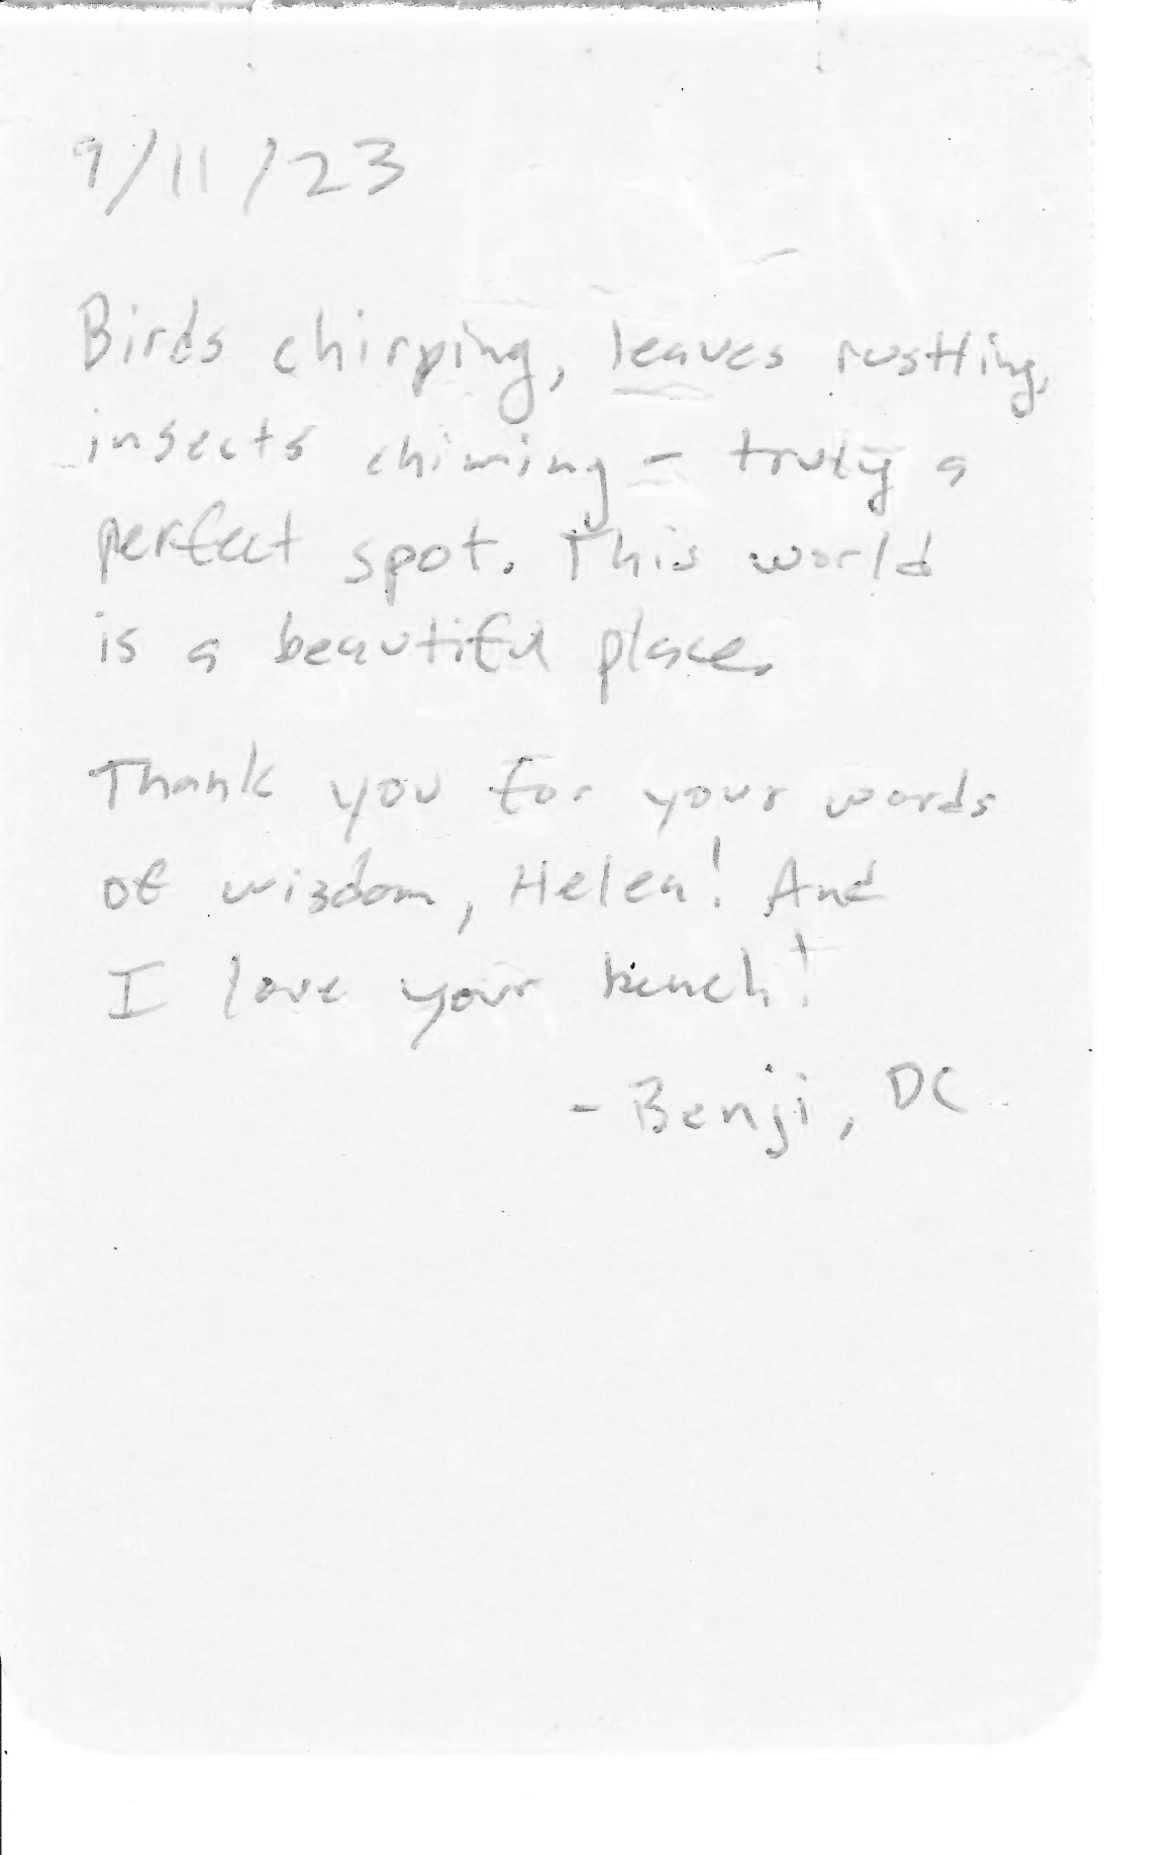 9/11/23
Birds chirping, leaves rustling,
insects chiming - truly a
perfect spot. This world
is a beautiful place.
Thank you for your words
of wisdom, Helen! And
I love your bench!
- Benji, DC